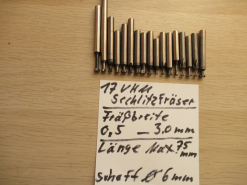 17 VHM
Sechlitzfräser
Fräßbreite
0,5 — 3.0 mm
Länge Max. 75
mm
schaft Ø 6 mm